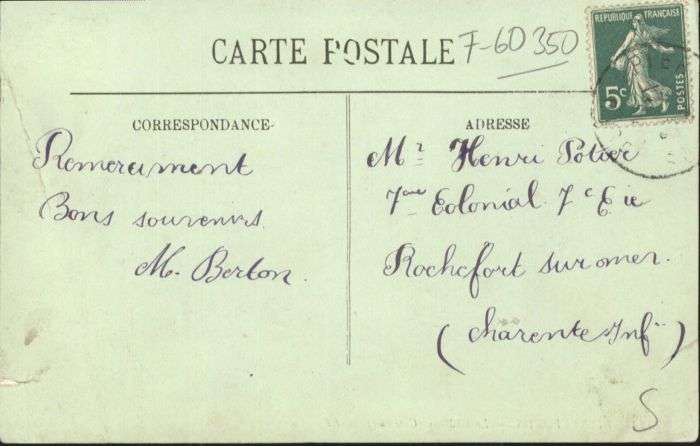 CARTE POSTALE
7-60350
RÉPUBLIQUE FRANÇAISE
POSTES
5c
CORRESPONDANCE
Remerciement
Bons souvenirs
M. Berton.
ADRESSE
Mr Henri Potier
7me Colonial 7e Cie
Rochefort sur mer.
(Charente Infre)
S